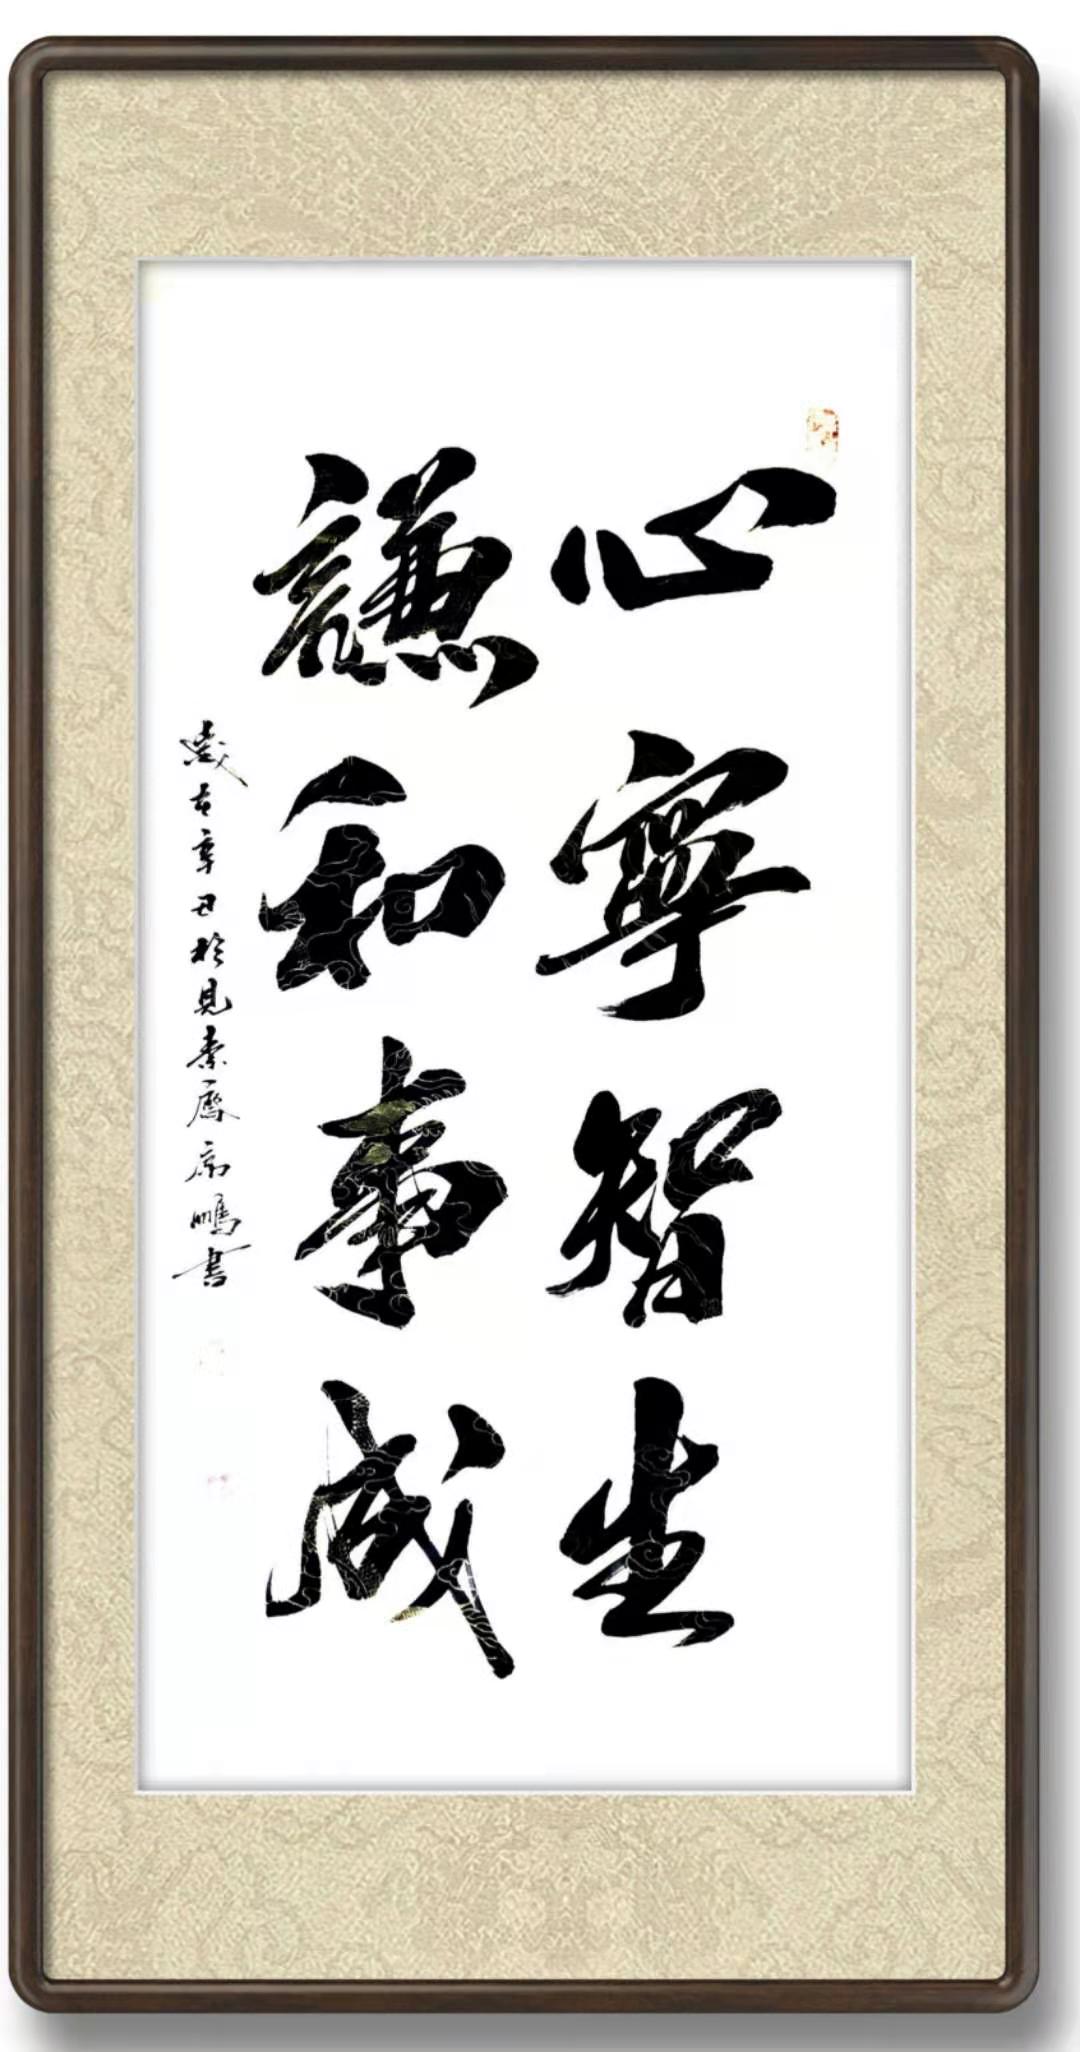 心寧智生
謙和事成
歲在辛丑於見素齋高鵬書